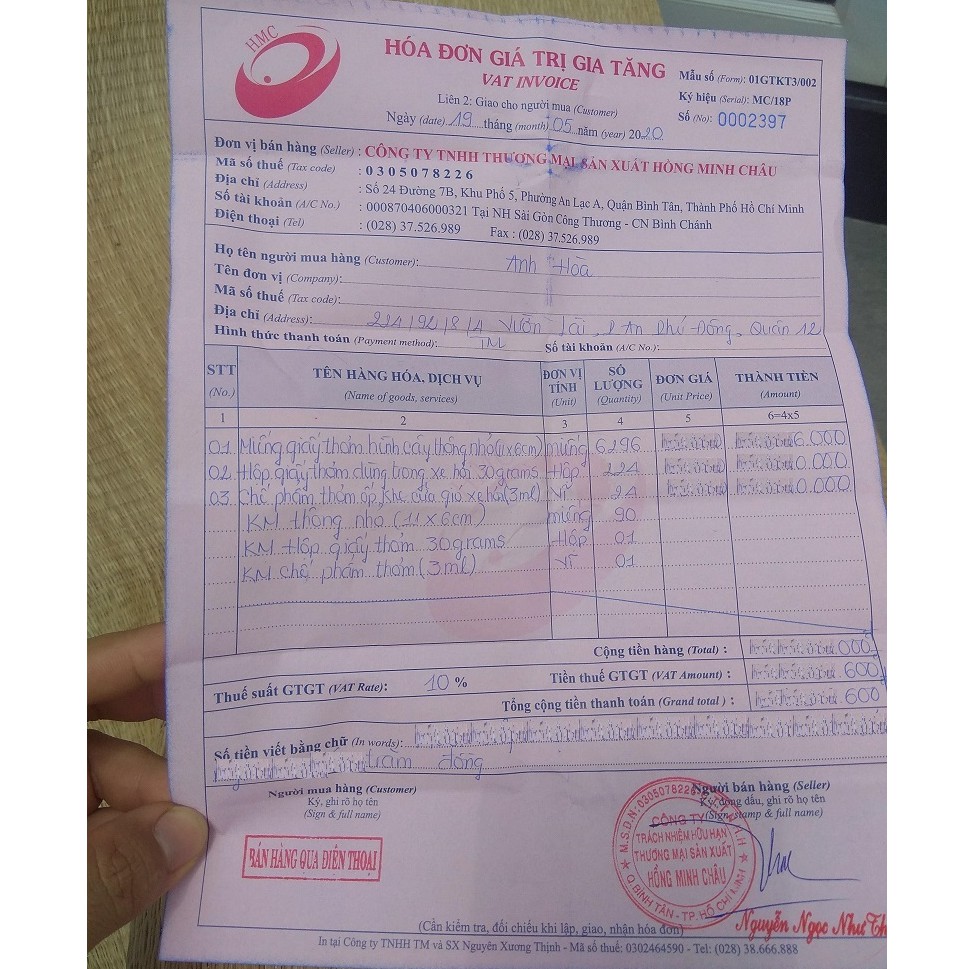 HMC
HÓA ĐƠN GIÁ TRỊ GIA TĂNG
VAT INVOICE
Liên 2: Giao cho người mua (Customer)
Ngày (date) 19 tháng (month) 05 năm (year) 2020
Mẫu số (Form): 01GTKT3/002
Ký hiệu (Serial): MC/18P
Số (No): 0002397
Đơn vị bán hàng (Seller) : CÔNG TY TNHH THƯƠNG MẠI SẢN XUẤT HỒNG MINH CHÂU
Mã số thuế (Tax code) : 0305078226
Địa chỉ (Address) : Số 24 Đường 7B, Khu Phố 5, Phường An Lạc A, Quận Bình Tân, Thành Phố Hồ Chí Minh
Số tài khoản (A/C No.) : 000870406000321 Tại NH Sài Gòn Công Thương - CN Bình Chánh
Điện thoại (Tel) : (028) 37.526.989 Fax : (028) 37.526.989
Họ tên người mua hàng (Customer): Anh Hòa
Tên đơn vị (Company):
Mã số thuế (Tax code):
Địa chỉ (Address): Vườn Lài, P An Phú Đông, Quận 12
Hình thức thanh toán (Payment method): TM Số tài khoản (A/C No.):
STT (No.) TÊN HÀNG HÓA, DỊCH VỤ (Name of goods, services) ĐƠN VỊ TÍNH (Unit) SỐ LƯỢNG (Quantity) ĐƠN GIÁ (Unit Price) THÀNH TIỀN (Amount)
1 2 3 4 5 6=4x5
01 Miếng giấy thơm hình cây thông nhỏ (11x6cm) miếng 6296 6.000
02 Hộp giấy thơm dùng trong xe hơi 30grams Hộp 224 0.000
03 Chế phẩm thơm ốp khe cửa gió xe hơi (3ml) Vĩ 24 0.000
KM thông nhỏ (11x6cm) miếng 90
KM Hộp giấy thơm 30grams Hộp 01
KM chế phẩm thơm (3ml) Vĩ 01
Cộng tiền hàng (Total) : 000
Thuế suất GTGT (VAT Rate): 10 % Tiền thuế GTGT (VAT Amount) : 600
Tổng cộng tiền thanh toán (Grand total) : 600
Số tiền viết bằng chữ (In words):
trăm đồng
Người mua hàng (Customer)
Ký, ghi rõ họ tên
(Sign & full name)
Người bán hàng (Seller)
Ký, đóng dấu, ghi rõ họ tên
(Sign, stamp & full name)
BÁN HÀNG QUA ĐIỆN THOẠI
M.S.D.N: 0305078226
CÔNG TY
TRÁCH NHIỆM HỮU HẠN
THƯƠNG MẠI SẢN XUẤT
HỒNG MINH CHÂU
Q.BÌNH TÂN - TP. HỒ CHÍ MINH
Nguyễn Ngọc Như Th
(Cần kiểm tra, đối chiếu khi lập, giao, nhận hóa đơn)
In tại Công ty TNHH TM và SX Nguyên Xương Thịnh - Mã số thuế: 0302464590 - Tel: (028) 38.666.888